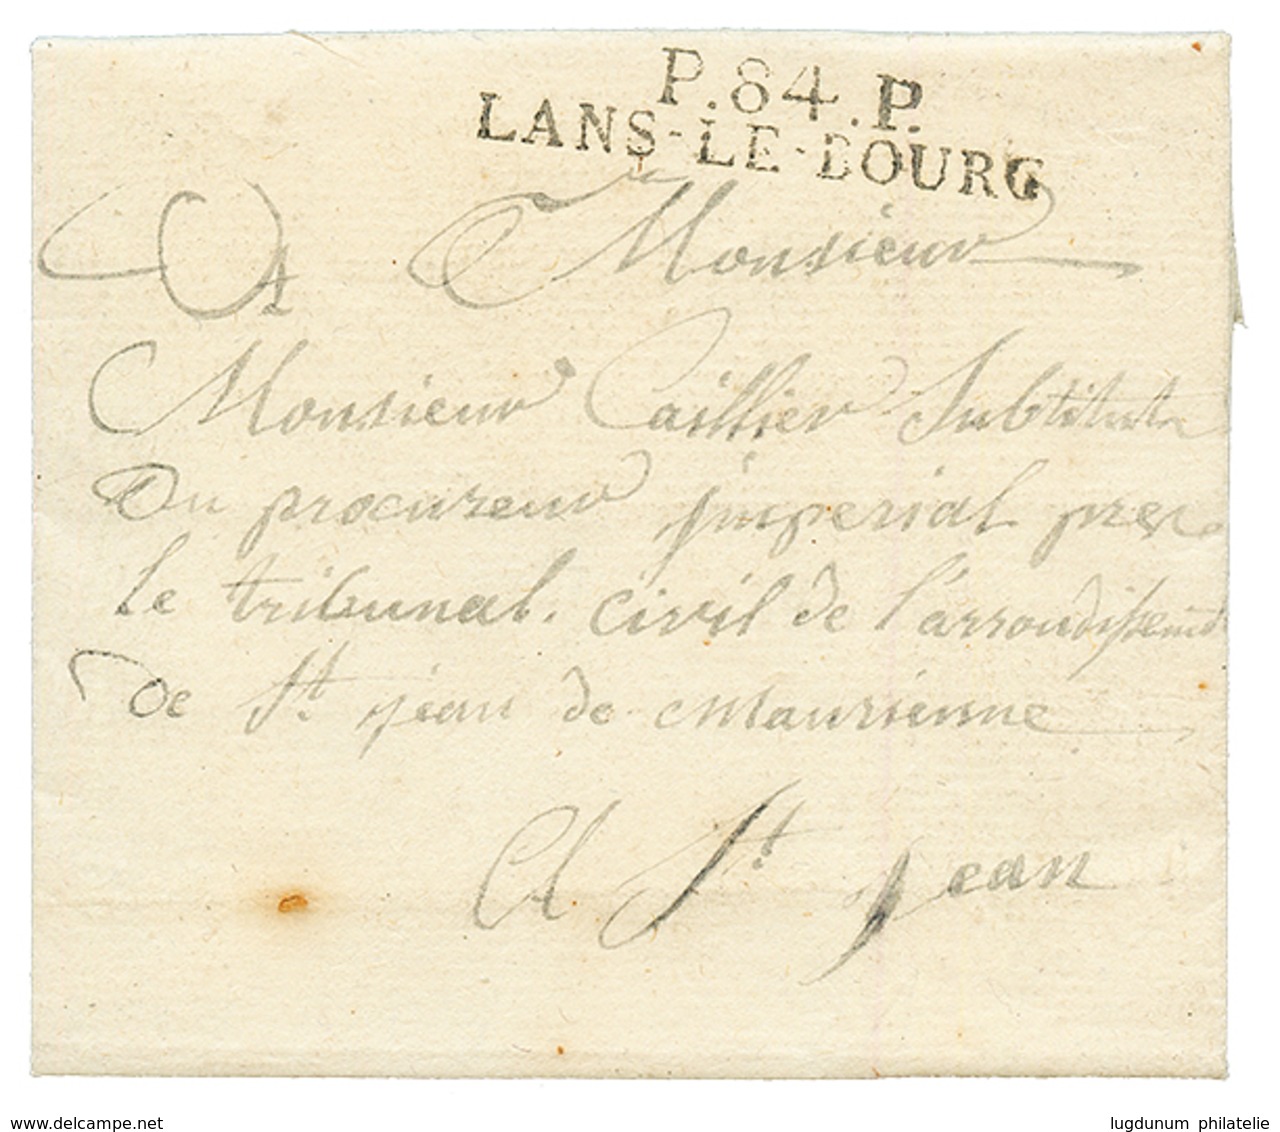 P.84.P.
LANS-LE-BOURG
A Monsieur
Monsieur Caillier Subtitut
Du procureur jmperial pres
le tribunal civil de l'arrondissemt
De St. jean de Maurienne
A St. jean
www.delcampe.net
lugdunum philatelie